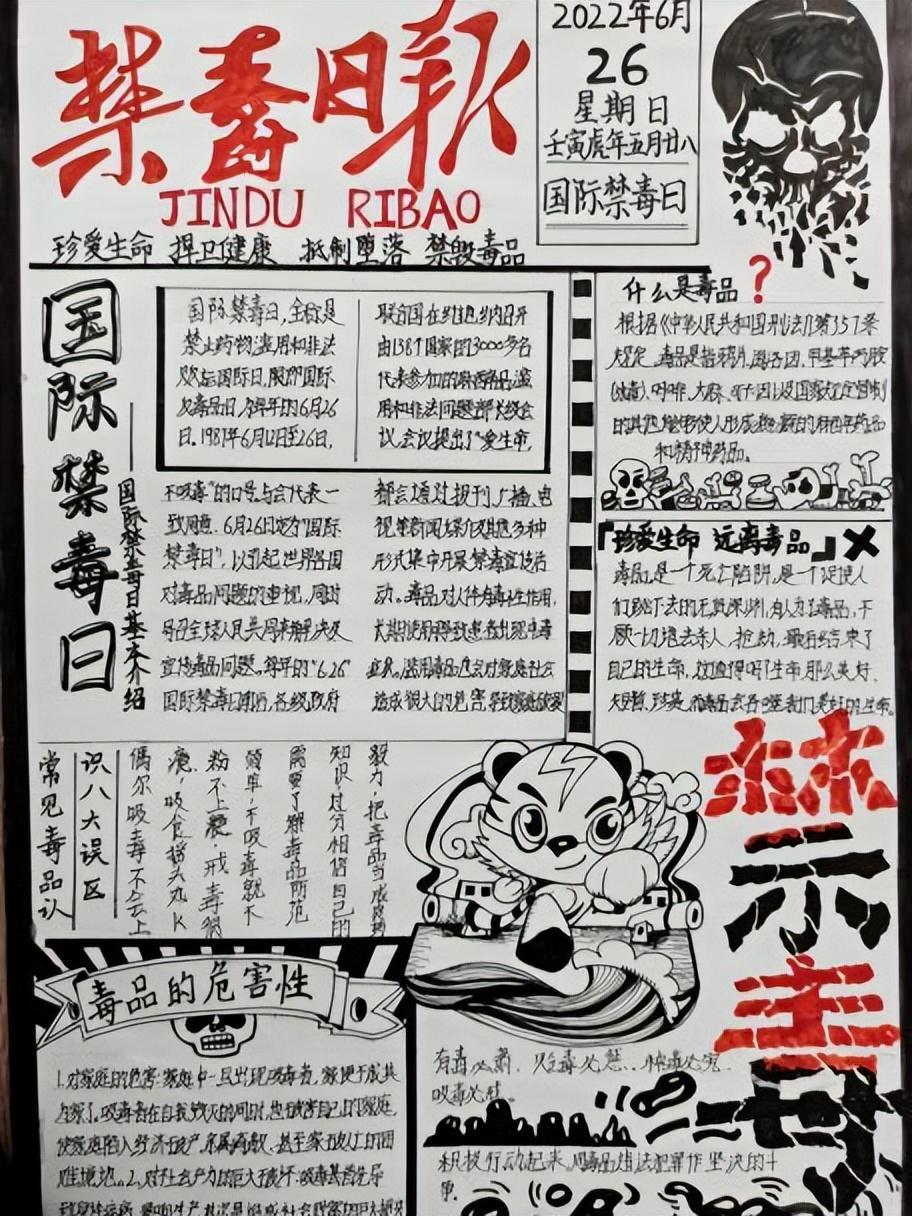 禁毒日報
JINDU RIBAO
珍爱生命 捍卫健康 抵制堕落 禁毁毒品
2022年6月
26
星期日
壬寅虎年五月廿八
国际禁毒日
国际禁毒日
国际禁毒日基本介绍
国际禁毒日,全称是
禁止药物滥用和非法
国际
毒品日,每年的6月26
日。1987年6月12日至26日,
联合国在维也纳召开
由138个国家的3000多名
代表参加的麻醉品滥
用和非法问题部长级会
议,会议提出了"爱生命,
不吸毒"的口号与会代表一
致同意6月26日定为"国际
禁毒日",以引起世界各国
对毒品问题的重视,同时
号召全球人民共同来解决
毒品问题。每年的"6.26"
国际禁毒日前后,各级政府
都会通过报刊、广播、电
视等新闻媒介及其他多种
形式集中开展禁毒宣传活
动。毒品对人体有毒性作用,
滥用毒品还会对家庭社会
造成很大的危害
什么是毒品?
根据《中华人民共和国刑法》第357条
规定,毒品是指鸦片、海洛因、甲基苯丙胺
(冰毒)、吗啡、大麻、可卡因以及国家规定管制
的其他能够使人形成瘾癖的麻醉药品
和精神药品。
「珍爱生命 远离毒品」
毒品,是一个死亡陷阱,是一个促使人
们跳下去的无底深渊,有人为了毒品,不
顾一切地去杀人、抢劫,最后结束了
自己的生命,这值得吗?生命那么美好、
短暂、珍贵,
常见毒品认
识八大误区
偶尔吸毒不会上
瘾,吸食摇头丸K
粉不上瘾,戒毒很
简单,不吸毒就不
需要了解毒品防范
知识,过分相信自己的
毅力,把毒品当成
毒品的危害性
1.对家庭的危害:家庭中一旦出现吸毒者,家便不成其
为家了。吸毒者在自我毁灭的同时,也破害自己的家庭,
使家庭陷入经济破产、亲属离散、甚至家破人亡的困
难境地。2.对社会生产力的巨大破坏:吸毒首先导
有毒必肃、贩毒必惩、种毒必究、
吸毒必禁。
积极行动起来,同毒品违法犯罪作坚决的斗
争。
禁毒